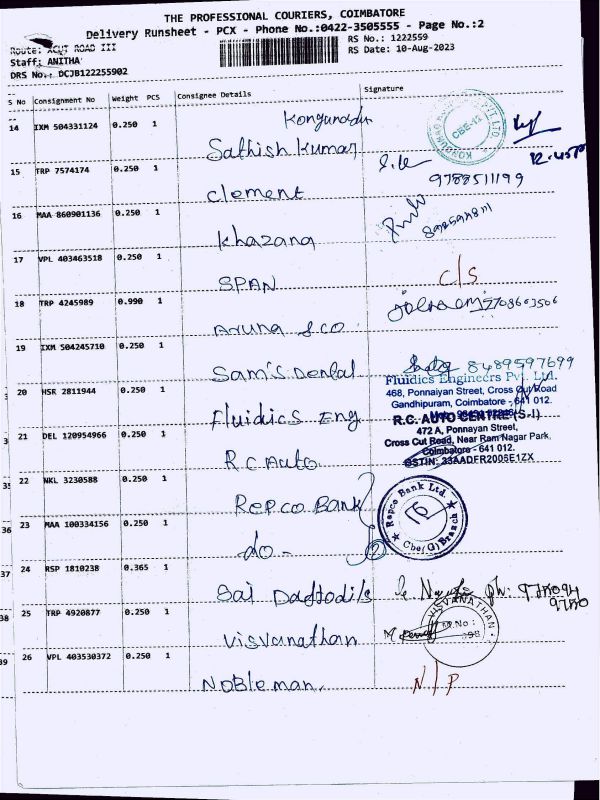 THE PROFESSIONAL COURIERS, COIMBATORE
Delivery Runsheet - PCX - Phone No.:0422-3505555 - Page No.:2
Route: ROAD III
Staff: ANITHA
DRS No.: DCJB122255902
RS No.: 1222559
RS Date: 10-Aug-2023
S No Consignment No Weight PCS Consignee Details Signature
14 IXM 504331124 0.250 1 Kongunadu
Sathish Kumar
CBE-12
15 TRP 7574174 0.250 1 Clement
9788511199
16 MAA 860901136 0.250 1 Khazana
17 VPL 403463518 0.250 1 SPAN C/S
18 TRP 4245989 0.990 1 Aruna & co
19 IXM 504245710 0.250 1 Sam's Dental 8489597699
20 HSR 2811944 0.250 1 Fluidics Eng
Fluidics Engineers Pvt. Ltd.
468, Ponnaiyan Street, Cross Cut Road
Gandhipuram, Coimbatore - 641 012.
21 DEL 120954966 0.250 1 R.C Auto
R.C. AUTO CENTRE (S-I)
472 A, Ponnayan Street,
Cross Cut Road, Near Ram Nagar Park,
Coimbatore - 641 012.
GSTIN: 33AADFR2005E1ZX
22 NKL 3230588 0.250 1 Repco Bank
Repco Bank Ltd.
Cbe(G) Branch
23 MAA 100334156 0.250 1 do - 2
24 RSP 1810238 0.365 1 Sai Daffodils
Ph:
25 TRP 4920877 0.250 1 Visvanathan
VISVANATHAN
M.No :
398
26 VPL 403530372 0.250 1 Nobleman. N/P
35
36
37
38
39